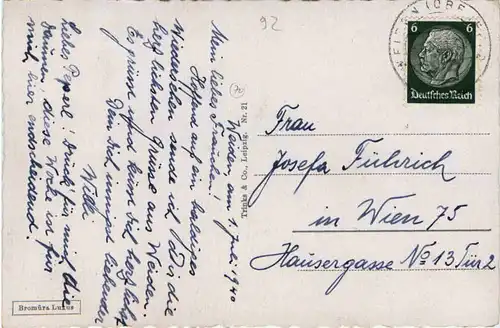 92
Weiden, am 1. Juli 1940
Mein liebes Frauchen!
Hoffend auf ein baldiges
Wiedersehen sende ich Dir die
herzlichsten Grüße aus Weiden.
Es grüsst und küsst Dich herzlichst
Dein Dich innigst liebender
Willi
Liebes Peperl! Drück' für mich die
Daumen, diese Woche ist für
mich hier entscheidend.
Trinks & Co., Leipzig. Nr. 21
Bromüra Luxus
6 6
Deutsches Reich
Frau
Josefa Fuhrich
in Wien 75
Hausergasse No 13 Tür 2